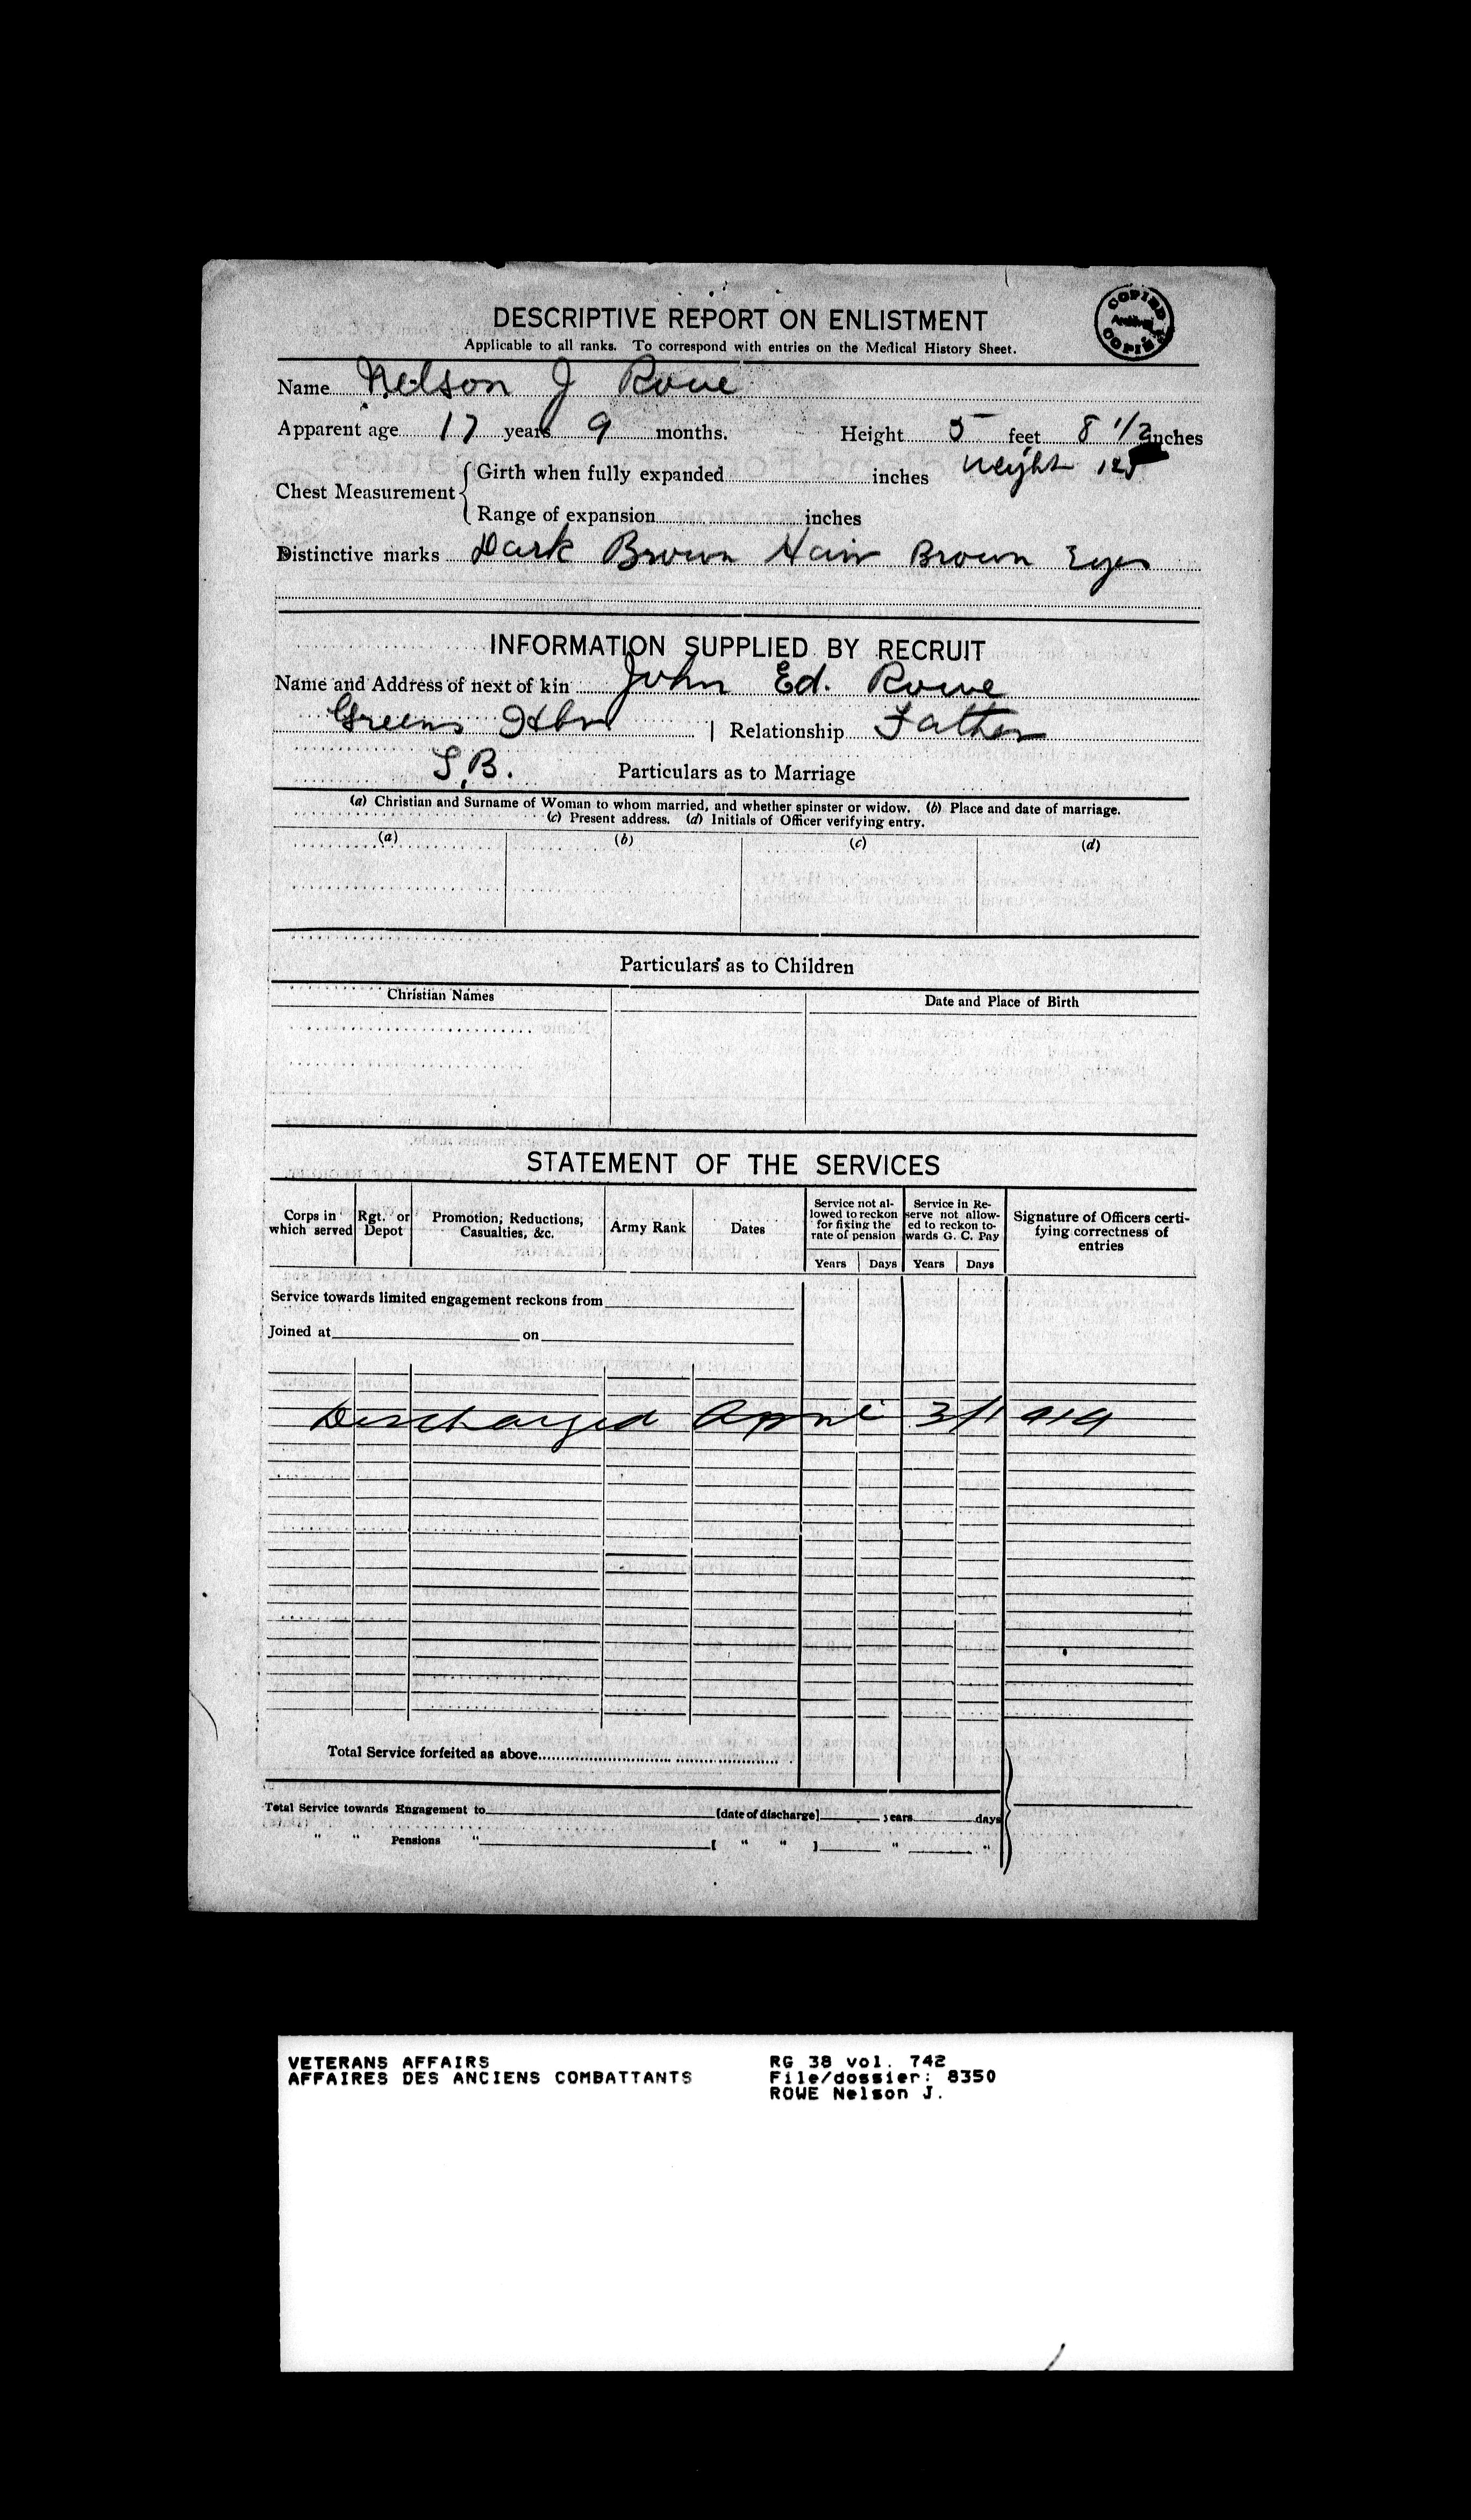 DESCRIPTIVE REPORT ON ENLISTMENT
Applicable to all ranks. To correspond with entries on the Medical History Sheet.
COPIED
COPIÉ
Name Nelson J Rowe
Apparent age 17 years 9 months. Height 5 feet 8 1/2 inches
Weight 125
Chest Measurement { Girth when fully expanded inches
Range of expansion inches
Distinctive marks Dark Brown Hair Brown Eyes
INFORMATION SUPPLIED BY RECRUIT
Name and Address of next of kin John Ed. Rowe
Greens Hbr | Relationship Father
S.B. Particulars as to Marriage
(a) Christian and Surname of Woman to whom married, and whether spinster or widow. (b) Place and date of marriage.
(c) Present address. (d) Initials of Officer verifying entry.
(a) (b) (c) (d)
Particulars as to Children
Christian Names Date and Place of Birth
STATEMENT OF THE SERVICES
Corps in which served Rgt. or Depot Promotion, Reductions, Casualties, &c. Army Rank Dates Service not allowed to reckon for fixing the rate of pension Service in Reserve not allowed to reckon towards G. C. Pay Signature of Officers certifying correctness of entries
Years Days Years Days
Service towards limited engagement reckons from
Joined at on
Discharged April 3/1919
Total Service forfeited as above
Total Service towards Engagement to [date of discharge] years days
" " Pensions " [ " " ] " "
VETERANS AFFAIRS RG 38 vol. 742
AFFAIRES DES ANCIENS COMBATTANTS File/dossier: 8350
ROWE Nelson J.